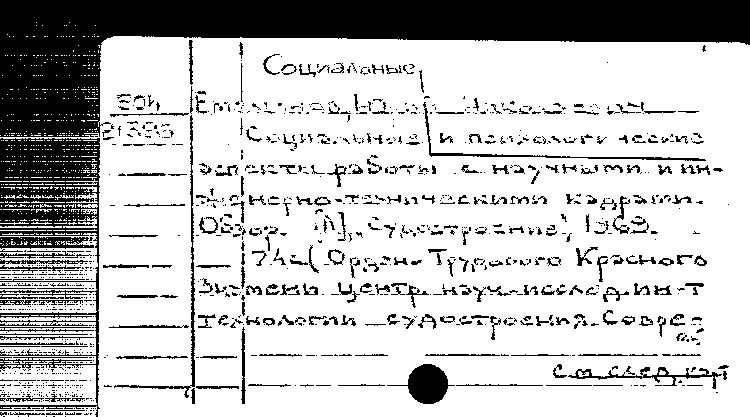 Социальные
Емельянов, Юрий Николаевич
Социальные и психологические
аспекты работы с научными и ин-
женерно-техническими кадрами.
Обзор. [Л], "Судостроение", 1969.
74с (Орден. Трудового Красного
Знамени центр. науч.-исслед. ин-т
технологии судостроения. Совре-
см след. карт